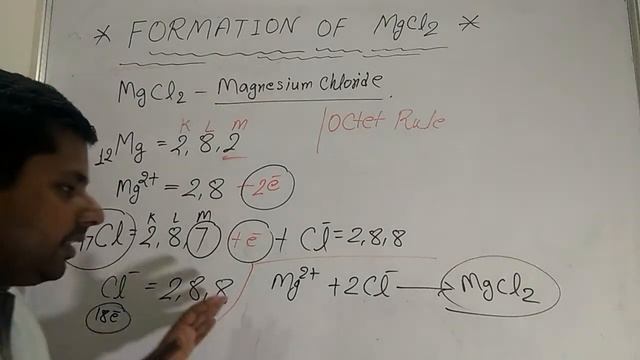 * FORMATION OF MgCl2 *
MgCl2 - Magnesium Chloride.
Octet Rule
K L M
12Mg = 2, 8, 2
Mg2+ = 2, 8 - 2e-
K L M
17Cl = 2, 8, 7 +e- + Cl- = 2, 8, 8
Cl- = 2, 8, 8
18e-
Mg2+ + 2Cl- → MgCl2